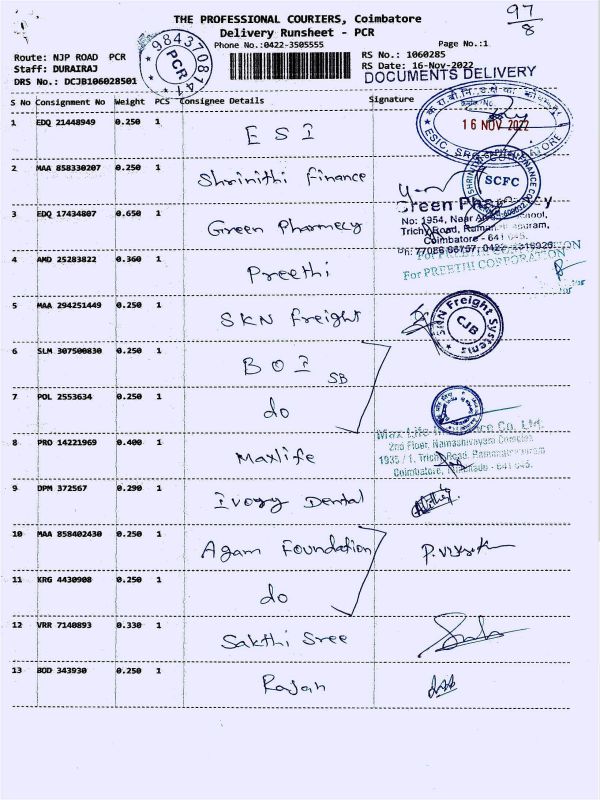 THE PROFESSIONAL COURIERS, Coimbatore
97/8
Delivery Runsheet - PCR
Phone No.:0422-3505555
Page No.:1
Route: NJP ROAD PCR
RS No.: 1060285
Staff: DURAIRAJ
RS Date: 16-Nov-2022
DRS No.: DCJB106028501
DOCUMENTS DELIVERY
9843708141
PCR
S No Consignment No Weight PCS Consignee Details Signature
1 EDQ 21448949 0.250 1 ESI
16 NOV 2022
2 MAA 858330207 0.250 1 Shrinithi Finance
SCFC
3 EDQ 17434807 0.650 1 Green Pharmecy
Green Pharmacy
No: 1954, Near
Trichy Road,
Coimbatore - 641 045.
4 AMD 25283822 0.360 1 Preethi
For PREETHI CORPORATION
For PREETHI CORPORATION
5 MAA 294251449 0.250 1 SKN Freight
SKN Freight Systems
CJB
6 SLM 307500830 0.250 1 BOI SB
7 POL 2553634 0.250 1 do
8 PRO 14221969 0.400 1 Maxlife
Max Life Insurance Co. Ltd.
2nd Floor, Namashivayam Complex
1935 / 1, Trichy Road,
Coimbatore, Tamilnadu - 641 045.
9 DPM 372567 0.290 1 Ivory Dental
10 MAA 858402430 0.250 1 Agam Foundation
11 KRG 4430908 0.250 1 do
12 VRR 7140893 0.330 1 Sakthi Sree
13 BOD 343930 0.250 1 Rajan